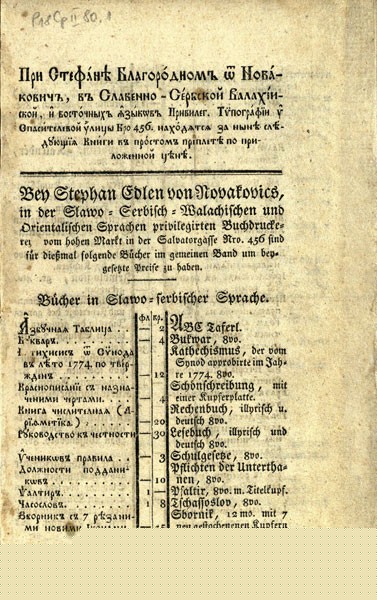 При Стефа́нѣ Благоро́дномъ ѿ Нова́-
ковичъ, въ Славенно-Се́рбской Валахі́й-
ской, и Восточныхъ Ѧзыкѡвъ Привилег. Тѷпографіи у҆
Спасителевой улицы Nро 456. находѧтсѧ за ныне слѣ-
дующіѧ Книги въ простомъ пріплетѣ по при-
ложенной цѣнѣ.
Bey Stephan Edlen von Novakovics,
in der Slawo-Serbisch-Walachischen und
Orientalischen Sprachen privilegirten Buchdrucke-
rei vom hohen Markt in der Salvatorgasse Nro. 456 sind
für dießmal folgende Bücher im gemeinen Band um bey-
gesetzte Preise zu haben.
Bücher in Slawo-serbischer Sprache.
фл кр.
Азбучнаѧ Таблица . . — 2 ABC Taferl.
Букварь. . . . — 4 Bukwar, 8vo.
Катихисисъ ѿ Сѷнода — Kathechismus, der vom
въ лѣто 1774. по твер- Synod approbirte im Jah-
жденъ . . . — 12 re 1774. 8vo.
Краснописаніе съ назна- Schönschreibung, mit
ченими чертами. . . — 4 einer Kupferplatte.
Книга числителнаѧ (А- Rechenbuch, illyrisch u.
риѳметіка) . . . — 20 deutsch 8vo.
Руководство къ честности — 30 Lesebuch, illyrisch und
deutsch 8vo.
Ученикѡвъ правила . . — 3 Schulgesetze, 8vo.
Должности поддани- Pflichten der Untertha-
кѡвъ . . . — 10 nen, 8vo.
Ѱалтиръ. . . . 1 — Psaltir, 8vo. m. Titelkupf.
Часословъ. . . . 1 8 Tschassoslov, 8vo.
Зборникъ съ 7 рѣзани- Sbornik, 12 mo. mit 7
ми новими